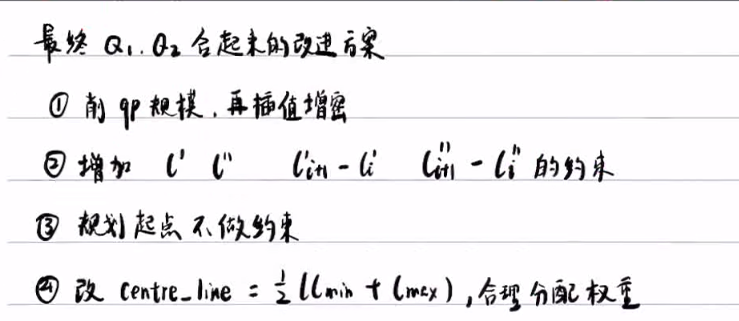 最终 Q₁. Q₂ 合起来的改进方案
① 削 qp 规模, 再插值增密
② 增加 l' l'' l'ᵢ₊₁ - lᵢ' l''ᵢ₊₁ - lᵢ'' 的约束
③ 规划起点不做约束
④ 改 centre_line = ½ (lmin + lmax), 合理分配权重